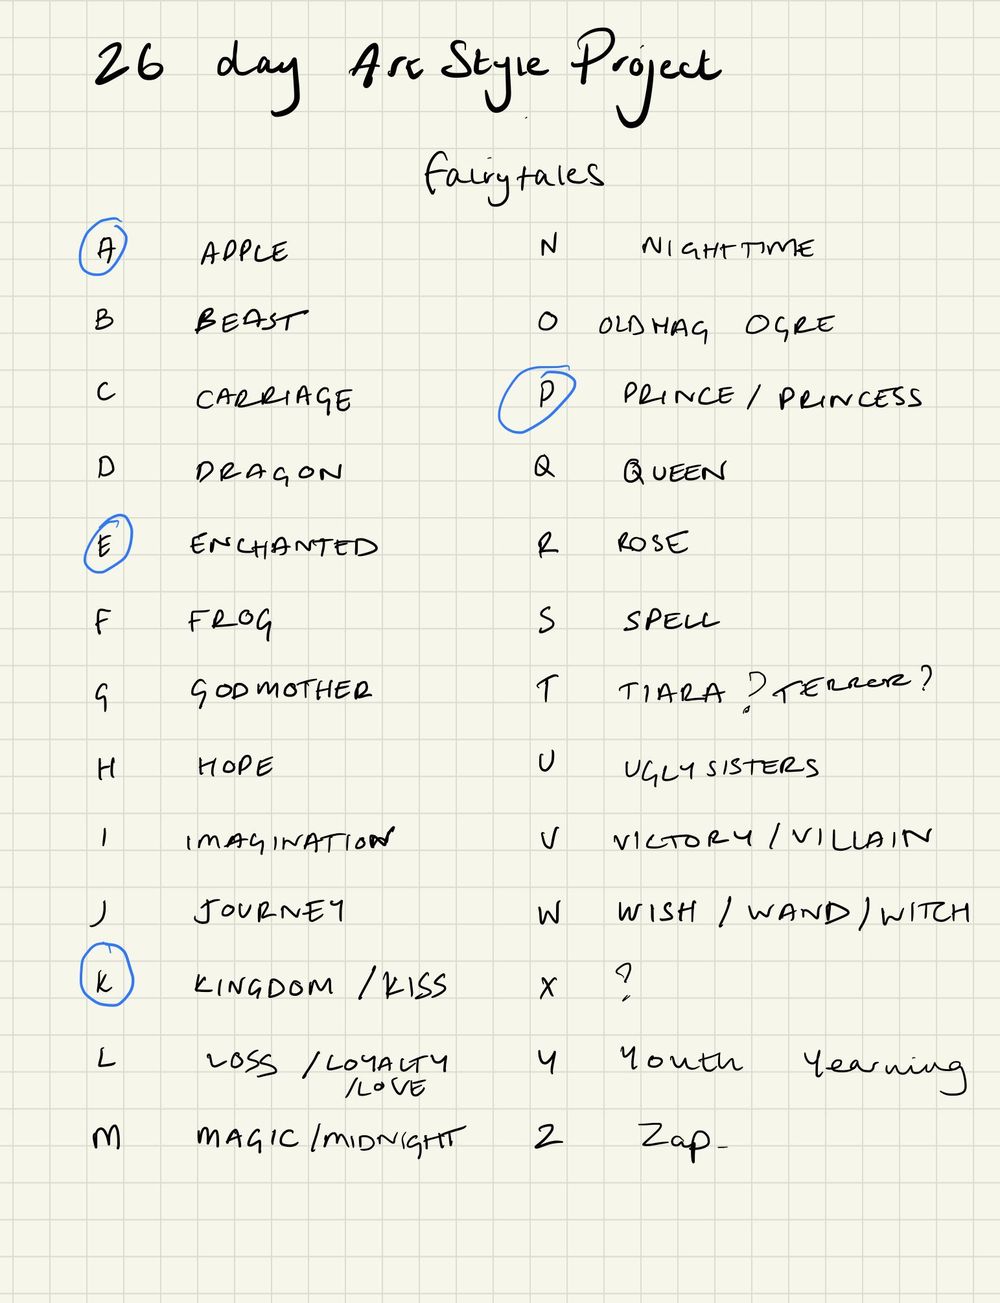 26 day Art Style Project
fairytales
A APPLE
B BEAST
C CARRIAGE
D DRAGON
E ENCHANTED
F FROG
G GODMOTHER
H HOPE
I IMAGINATION
J JOURNEY
K KINGDOM / KISS
L LOSS / LOYALTY
/ LOVE
M MAGIC / MIDNIGHT
N NIGHTTIME
O OLD HAG OGRE
P PRINCE / PRINCESS
Q QUEEN
R ROSE
S SPELL
T TIARA ? TERROR?
U UGLY SISTERS
V VICTORY / VILLAIN
W WISH / WAND / WITCH
X ?
Y Youth Yearning
Z Zap-